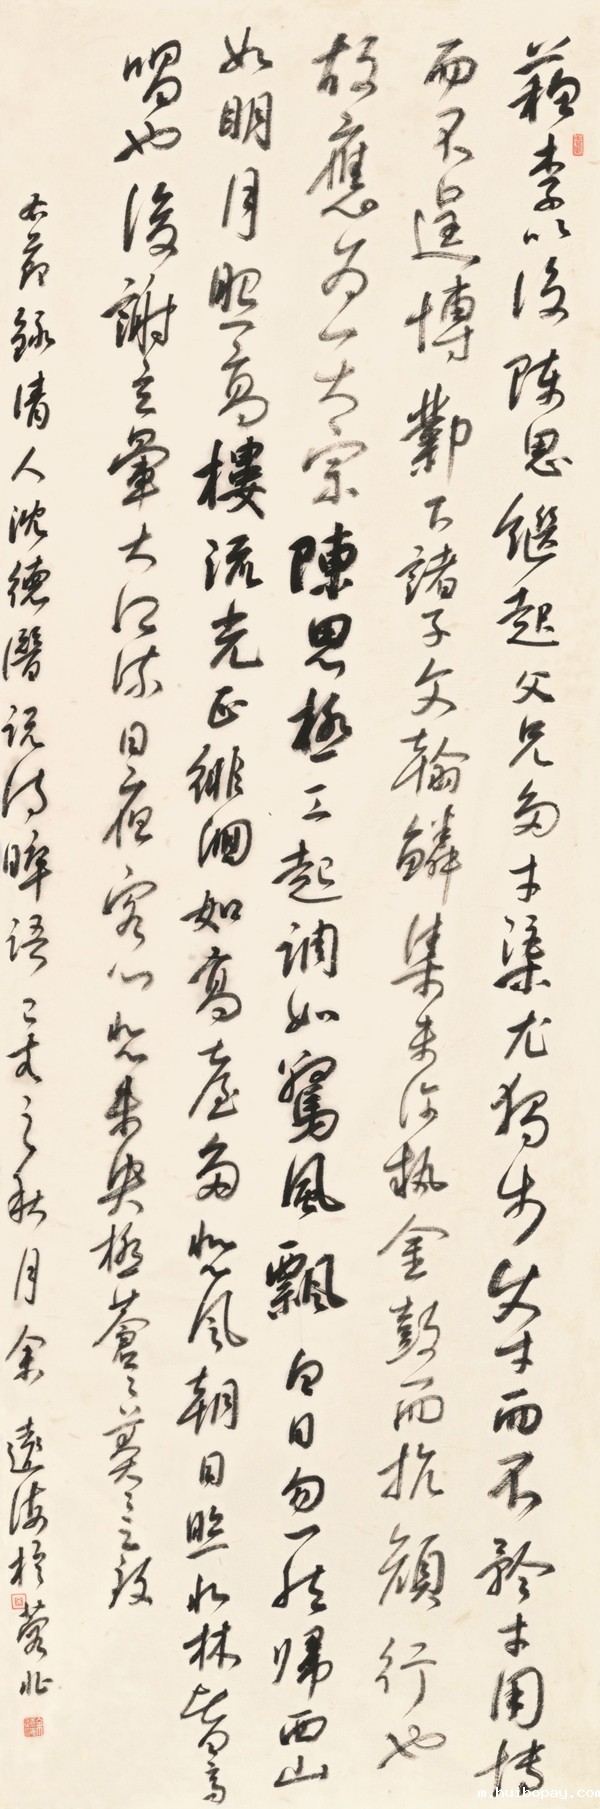 蘇李以後陳思繼起父兄多才渠尤獨步使才而不矜才用博
而不逞博鄴下諸子文翰鱗集未許執金鼓而抗顏行也
故應為一大宗陳思極工起調如驚風飄白日勿一然歸西山
如明月照高樓流光正徘徊如高臺多悲風朝日照北林皆高
唱也後謝玄暉大江流日夜客心悲未央極蒼蒼莽莽之致
右節錄清人沈德潛說詩晬語己亥之秋月余遠海於
m.huibopay.com